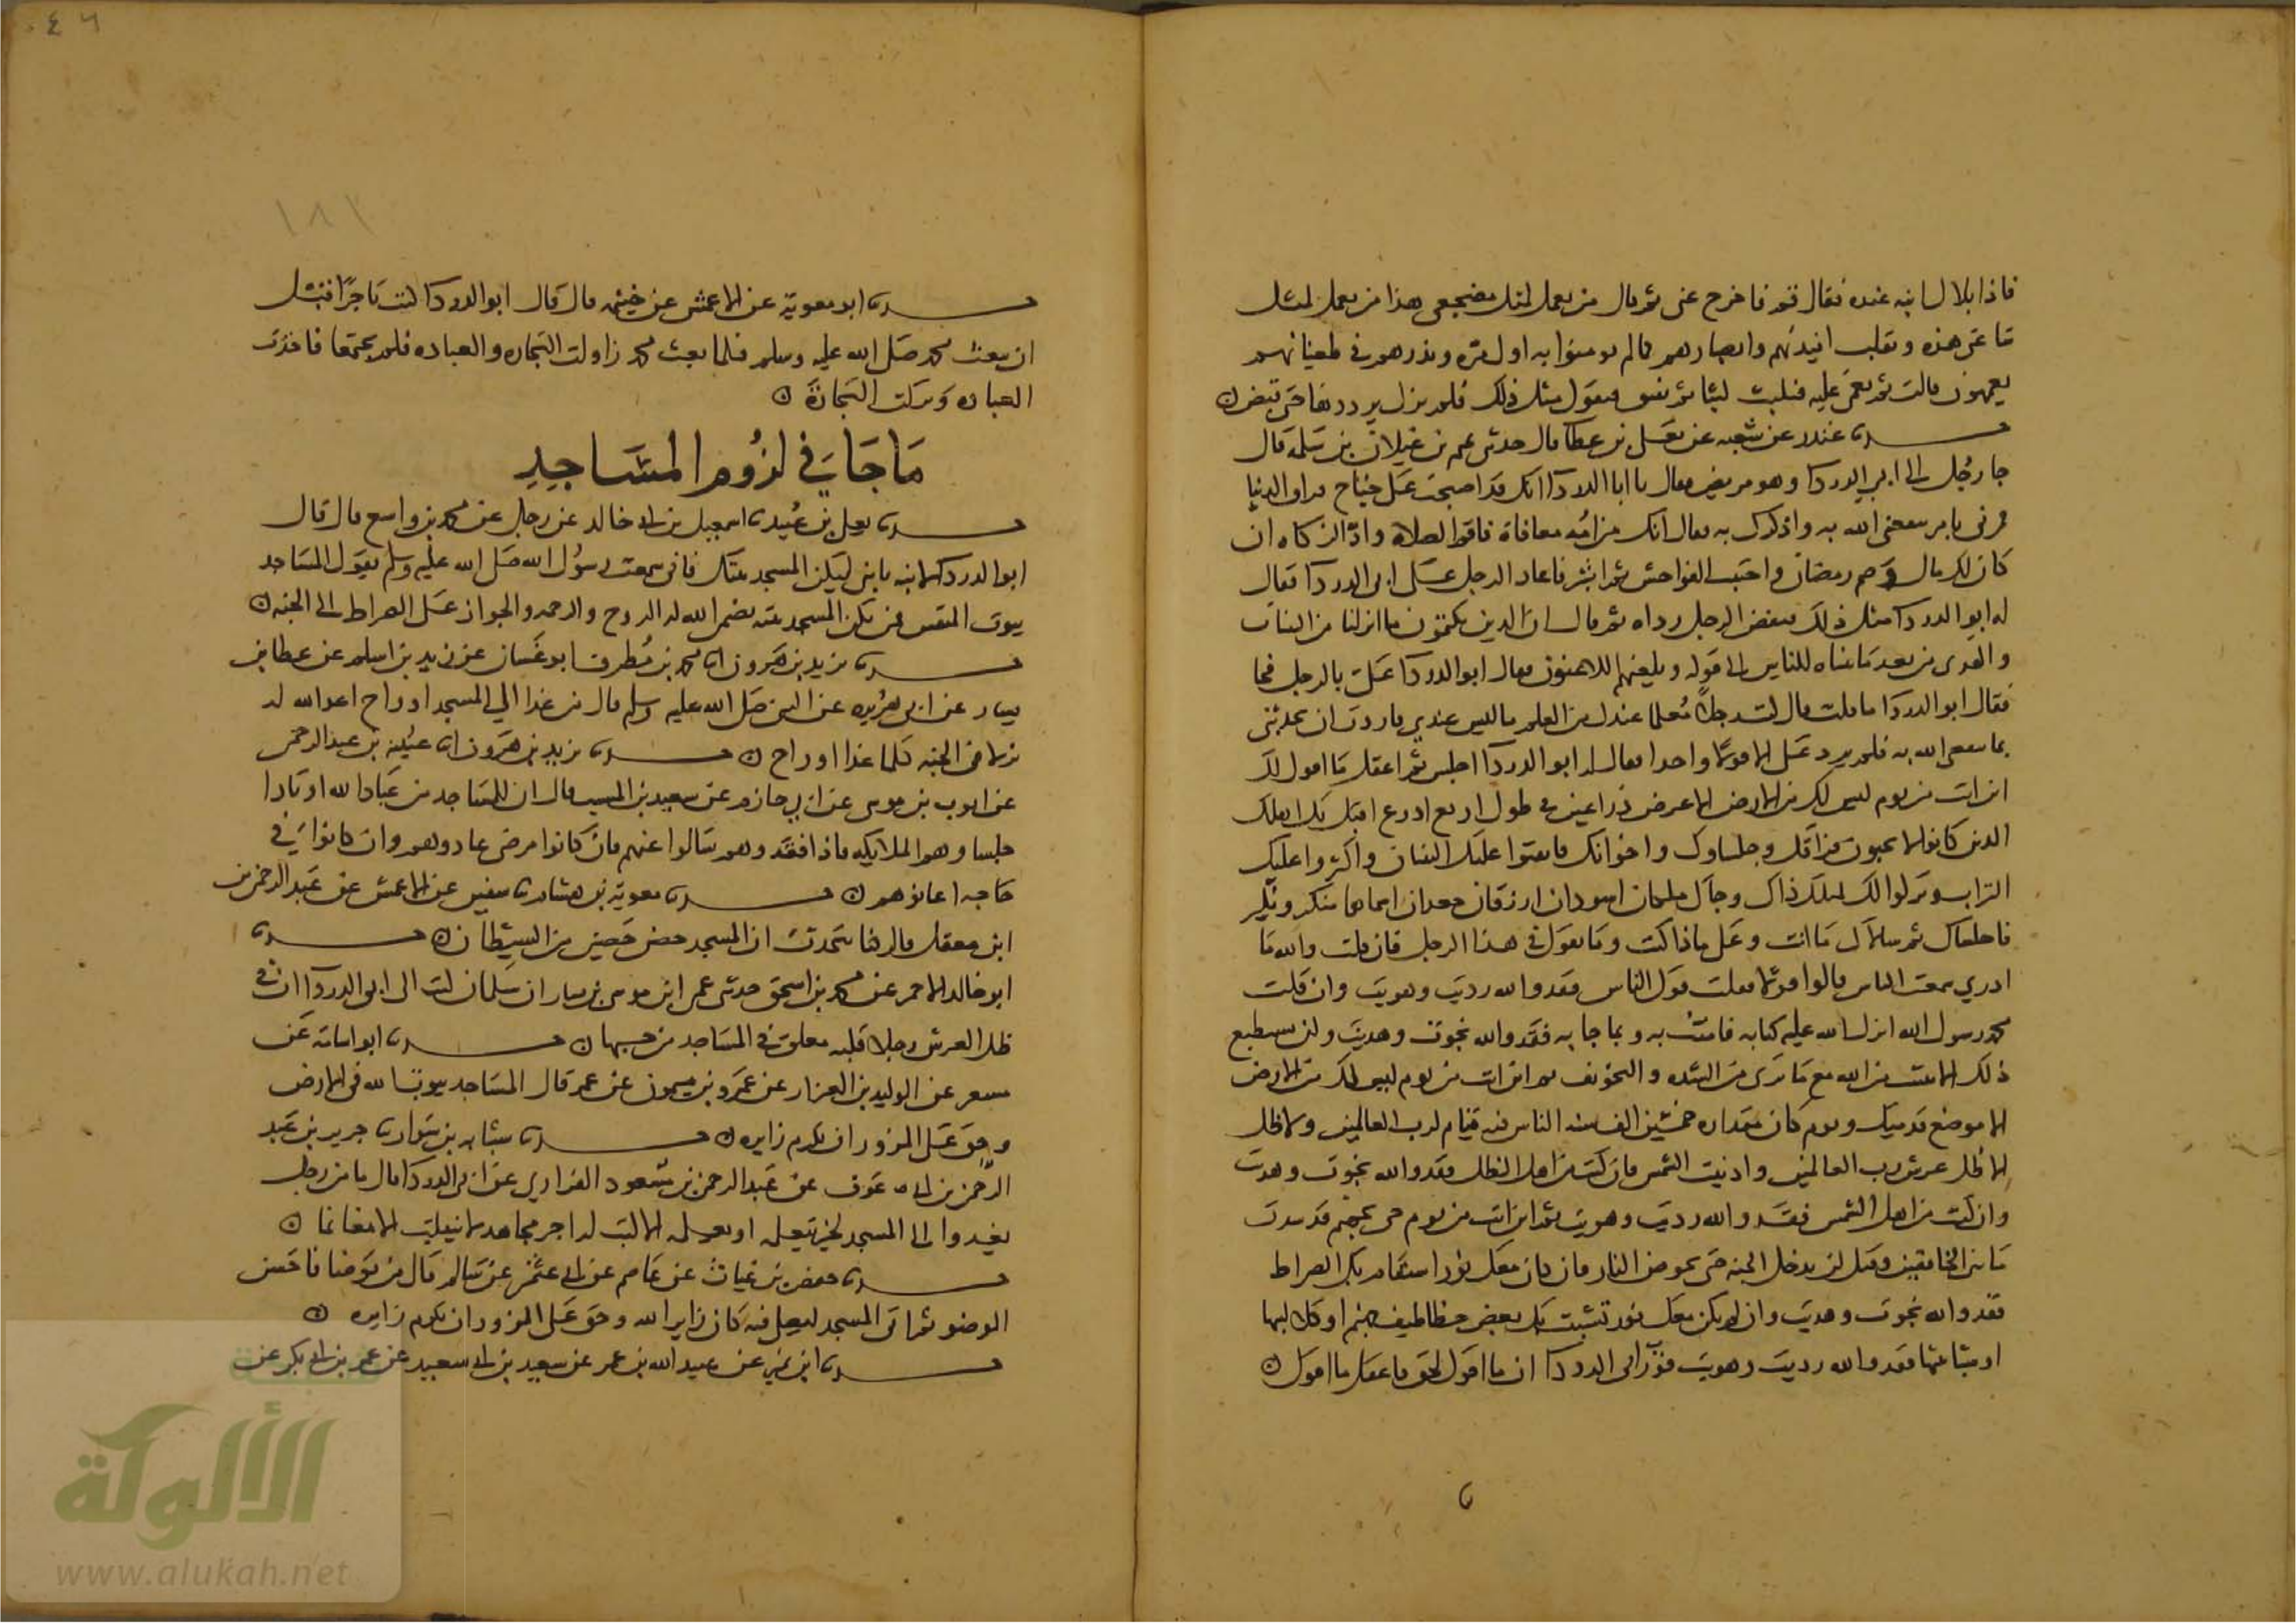 فاذا بلال ابنه عنده فقال قم فاخرج عني ثم قال من يعمل لمثل مضجعي هذا من يعمل لمثل
ساعتي هذه ونقلب افيدتهم وابصارهم كما لم يومنوا به اول مرة ونذرهم في طغيانهم
يعمهون قالت ثم يغمى عليه فيلبث لبثا ثم يفيق فيقول مثل ذلك فلم يزل يرددها حتى قبض
حدثنا غندر عن شعبه عن يعلى بن عطا قال حدثني تميم بن غيلان بن سلمه قال
جا رجل الى ابي الدردا وهو مريض فقال يا ابا الدردا انك قد اصبحت على جناح فراق الدنيا
فمرني بامر ينفعني الله به واذكرك به فقال انك من امة معافاة فاقم الصلاة واد الزكاه ان
كان لك مال وصم رمضان واجتنب الفواحش ثم ابشر فاعاد الرجل على ابي الدردا فقال
له ابو الدردا مثل ذلك فنفض الرجل رداه ثم قال ان الذين يكتمون ما انزلنا من البينات
والهدى من بعد ما بيناه للناس الى قوله ويلعنهم اللاعنون فقال ابو الدردا علي بالرجل فجا
فقال ابو الدردا ما قلت قال كنت رجلا معلما عندك من العلم ما ليس عندي فاردت ان تحدثني
بما ينفعني الله به فلم ترد علي الا قولا واحدا فقال له ابو الدردا اجلس ثم اعقل ما اقول لك
اين انت من يوم ليس لك من الارض الا عرض ذراعين في طول اربع اذرع اقبل بك اهلك
الذين كانوا لا يحبون فراقك وجلساوك واخوانك فاتقنوا عليك البنيان واكثروا عليك
التراب وتركوك لمتلك ذاك وجاك ملكان اسودان ازرقان جعدان اسماهما منكر ونكير
فاجلساك ثم سالاك ما انت وعلى ماذا كنت وما تقول في هذا الرجل فان قلت والله ما
ادري سمعت الناس قالوا قولا فقلت قول الناس فقد والله رديت وهويت وان قلت
محمد رسول الله انزل الله عليه كتابه فامنت به وبما جا به فقد والله نجوت وهديت ولن تستطيع
ذلك الا بتثبيت من الله مع ما ترى من الشده والتخويف ثم اين انت من يوم ليس لك من الارض
الا موضع قدميك ويوم كان مقداره خمسين الف سنه الناس فيه قيام لرب العالمين ولا ظل
الا ظل عرش رب العالمين وادنيت الشمس فان كنت من اهل الظل فقد والله نجوت وهديت
وان كنت من اهل الشمس فقد والله رديت وهويت ثم اين انت من يوم جي بجهنم قد سدت
ما بين الخافقين وقيل لن تدخل الجنه حتى تخوض النار فان كان معك نور استقام بك الصراط
فقد والله نجوت وهديت وان لم يكن معك نور تشبثت بك بعض خطاطيف جهنم او كلاليبها
او شبابيثها فقد والله رديت وهويت فورب ابي الدردا ان ما اقول لحق فاعقل ما اقول
٤٦
١٨١
حدثنا ابو معوية عن الاعمش عن خيثمه قال قال ابو الدردا كنت تاجرا قبل
ان يبعث محمد صلى الله عليه وسلم فلما بعث محمد زاولت التجاره والعباده فلم يجتمعا فاخذت
العباده وتركت التجارة
ما جا في لزوم المساجد
حدثنا يعلى بن عبيد نا اسمعيل بن ابي خالد عن رجل عن محمد بن واسع قال قال
ابو الدردا لابنه يا بني ليكن المسجد بيتك فاني سمعت رسول الله صلى الله عليه وسلم يقول المساجد
بيوت المتقين فمن يكن المسجد بيته يضمن الله له الروح والرحمه والجواز على الصراط الى الجنه
حدثنا يزيد بن هرون انا محمد بن مطرف ابو غسان عن زيد بن اسلم عن عطا بن
يسار عن ابي هريره عن النبي صلى الله عليه وسلم قال من غدا الى المسجد او راح اعد الله له
نزلا في الجنه كلما غدا او راح حدثنا يزيد بن هرون انا عيينه بن عبد الرحمن
عن ايوب بن موسى عن ابي حازم عن سعيد بن المسيب قال ان للمساجد من عباد الله اوتادا
جلساوهم الملايكه فاذا افتقدوهم سالوا عنهم فان كانوا مرضى عادوهم وان كانوا في
حاجه اعانوهم حدثنا معوية بن هشام نا سفين عن الاعمش عن عبد الرحمن بن
ابن معقل قال كنا نتحدث ان المسجد حصن حصين من الشيطان حدثنا
ابو خالد الاحمر عن محمد بن اسحق حدثني عمي ابن موسى بن يسار ان سلمان كتب الى ابي الدردا ان في
ظل العرش رجلا قلبه معلق في المساجد من حبها حدثنا ابو اسامة عن
مسعر عن الوليد بن العيزار عن عمرو بن ميمون عن عمر قال المساجد بيوت الله في الارض
وحق على المزور ان يكرم زايره حدثنا شبابه بن سوار نا جرير بن عبد
الرحمن بن ابي عوف عن عبد الرحمن بن مسعود الفزاري عن ابي الدردا قال ما من رجل
يغدوا الى المسجد لخير يتعلمه او يعلمه الا كتب له اجر مجاهد لا ينقلب الا غانما
حدثنا حفص بن غياث عن عاصم عن ابي عثمن عن سالم قال من توضا فاحسن
الوضو ثم اتى المسجد ليصلي فيه كان زاير الله وحق على المزور ان يكرم زايره
حدثنا ابن نمير عن عبيد الله بن عمر عن سعيد بن ابي سعيد عن عمر بن ابي بكر عن
شبكة
الألوكة
www.alukah.net